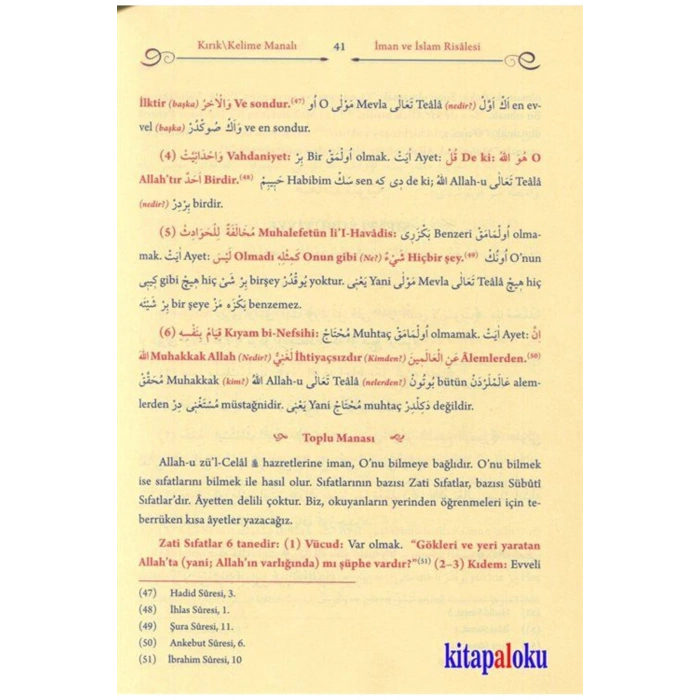 Kırık\Kelime Manalı 41 İman ve İslam Risâlesi
İlktir (başka) وَالْاٰخِرُ Ve sondur.(47) اُو O مَوْلٰى Mevla تَعَالٰى Teâlâ (nedir?) اَڭ اَوَّلْ en ev-
vel (başka) وَاَڭ صُوڭْدُرْ ve en sondur.
(4) وَاحْدَانِيَّتْ Vahdaniyet: بِرْ Bir اُولْمَقْ olmak. اٰيَتْ Ayet: قُلْ De ki: هُوَ اللهُ O
Allah’tır اَحَدٌ Birdir.(48) حَبِيبِمْ Habibim سَنْ sen دِى كِه de ki; اللهُ Allah-u تَعَالٰى Teâlâ
(nedir?) بِرْدِرْ birdir.
(5) مُخَالَفَةٌ لِلْحَوَادِثْ Muhalefetün li’l-Havâdis: بَكْزَرِى Benzeri اُولْمَامَقْ olma-
mak. اٰيَتْ Ayet: لَيْسَ Olmadı كَمِثْلِهِ Onun gibi (Ne?) شَيْءٌ Hiçbir şey.(49) اُونُڭْ O’nun
كِبِى gibi هِيچْ hiç بِرْ شَىْ birşey يُوقْدُرْ yoktur. يَعْنِى Yani مَوْلٰى Mevla تَعَالٰى Teâlâ هِيچْ hiç
بِرْ شَيْئَه bir şeye بَكْزَه مَزْ benzemez.
(6) قِيَامْ بِنَفْسِهِ Kıyam bi-Nefsihi: مُحْتَاجْ Muhtaç اُولْمَامَقْ olmamak. اٰيَتْ Ayet: اِنَّ
اللهَ Muhakkak Allah (Nedir?) لَغَنِيٌّ İhtiyaçsızdır (Kimden?) عَنِ الْعَالَمِينَ Âlemlerden.(50)
مُحَقَّقْ Muhakkak (kim?) اللهُ Allah-u تَعَالٰى Teâlâ (nelerden?) بُوتُونْ bütün عَالَمْلَرْدَنْ alem-
lerden مُسْتَغْنِى دِرْ müstağnidir. يَعْنِى Yani مُحْتَاجْ muhtaç دَكِلْدِرْ değildir.
Toplu Manası
Allah-u zü’l-Celâl ﷻ hazretlerine iman, O’nu bilmeye bağlıdır. O’nu bilmek
ise sıfatlarını bilmek ile hasıl olur. Sıfatlarının bazısı Zati Sıfatlar, bazısı Sübûti
Sıfatlar’dır. Âyetten delili çoktur. Biz, okuyanların yerinden öğrenmeleri için te-
berrüken kısa âyetler yazacağız.
Zati Sıfatlar 6 tanedir: (1) Vücud: Var olmak. “Gökleri ve yeri yaratan
Allah’ta (yani; Allah’ın varlığında) mı şüphe vardır?”(51) (2-3) Kıdem: Evveli
(47) Hadid Sûresi, 3.
(48) İhlas Sûresi, 1.
(49) Şura Sûresi, 11.
(50) Ankebut Sûresi, 6.
(51) İbrahim Sûresi, 10
kitapaloku